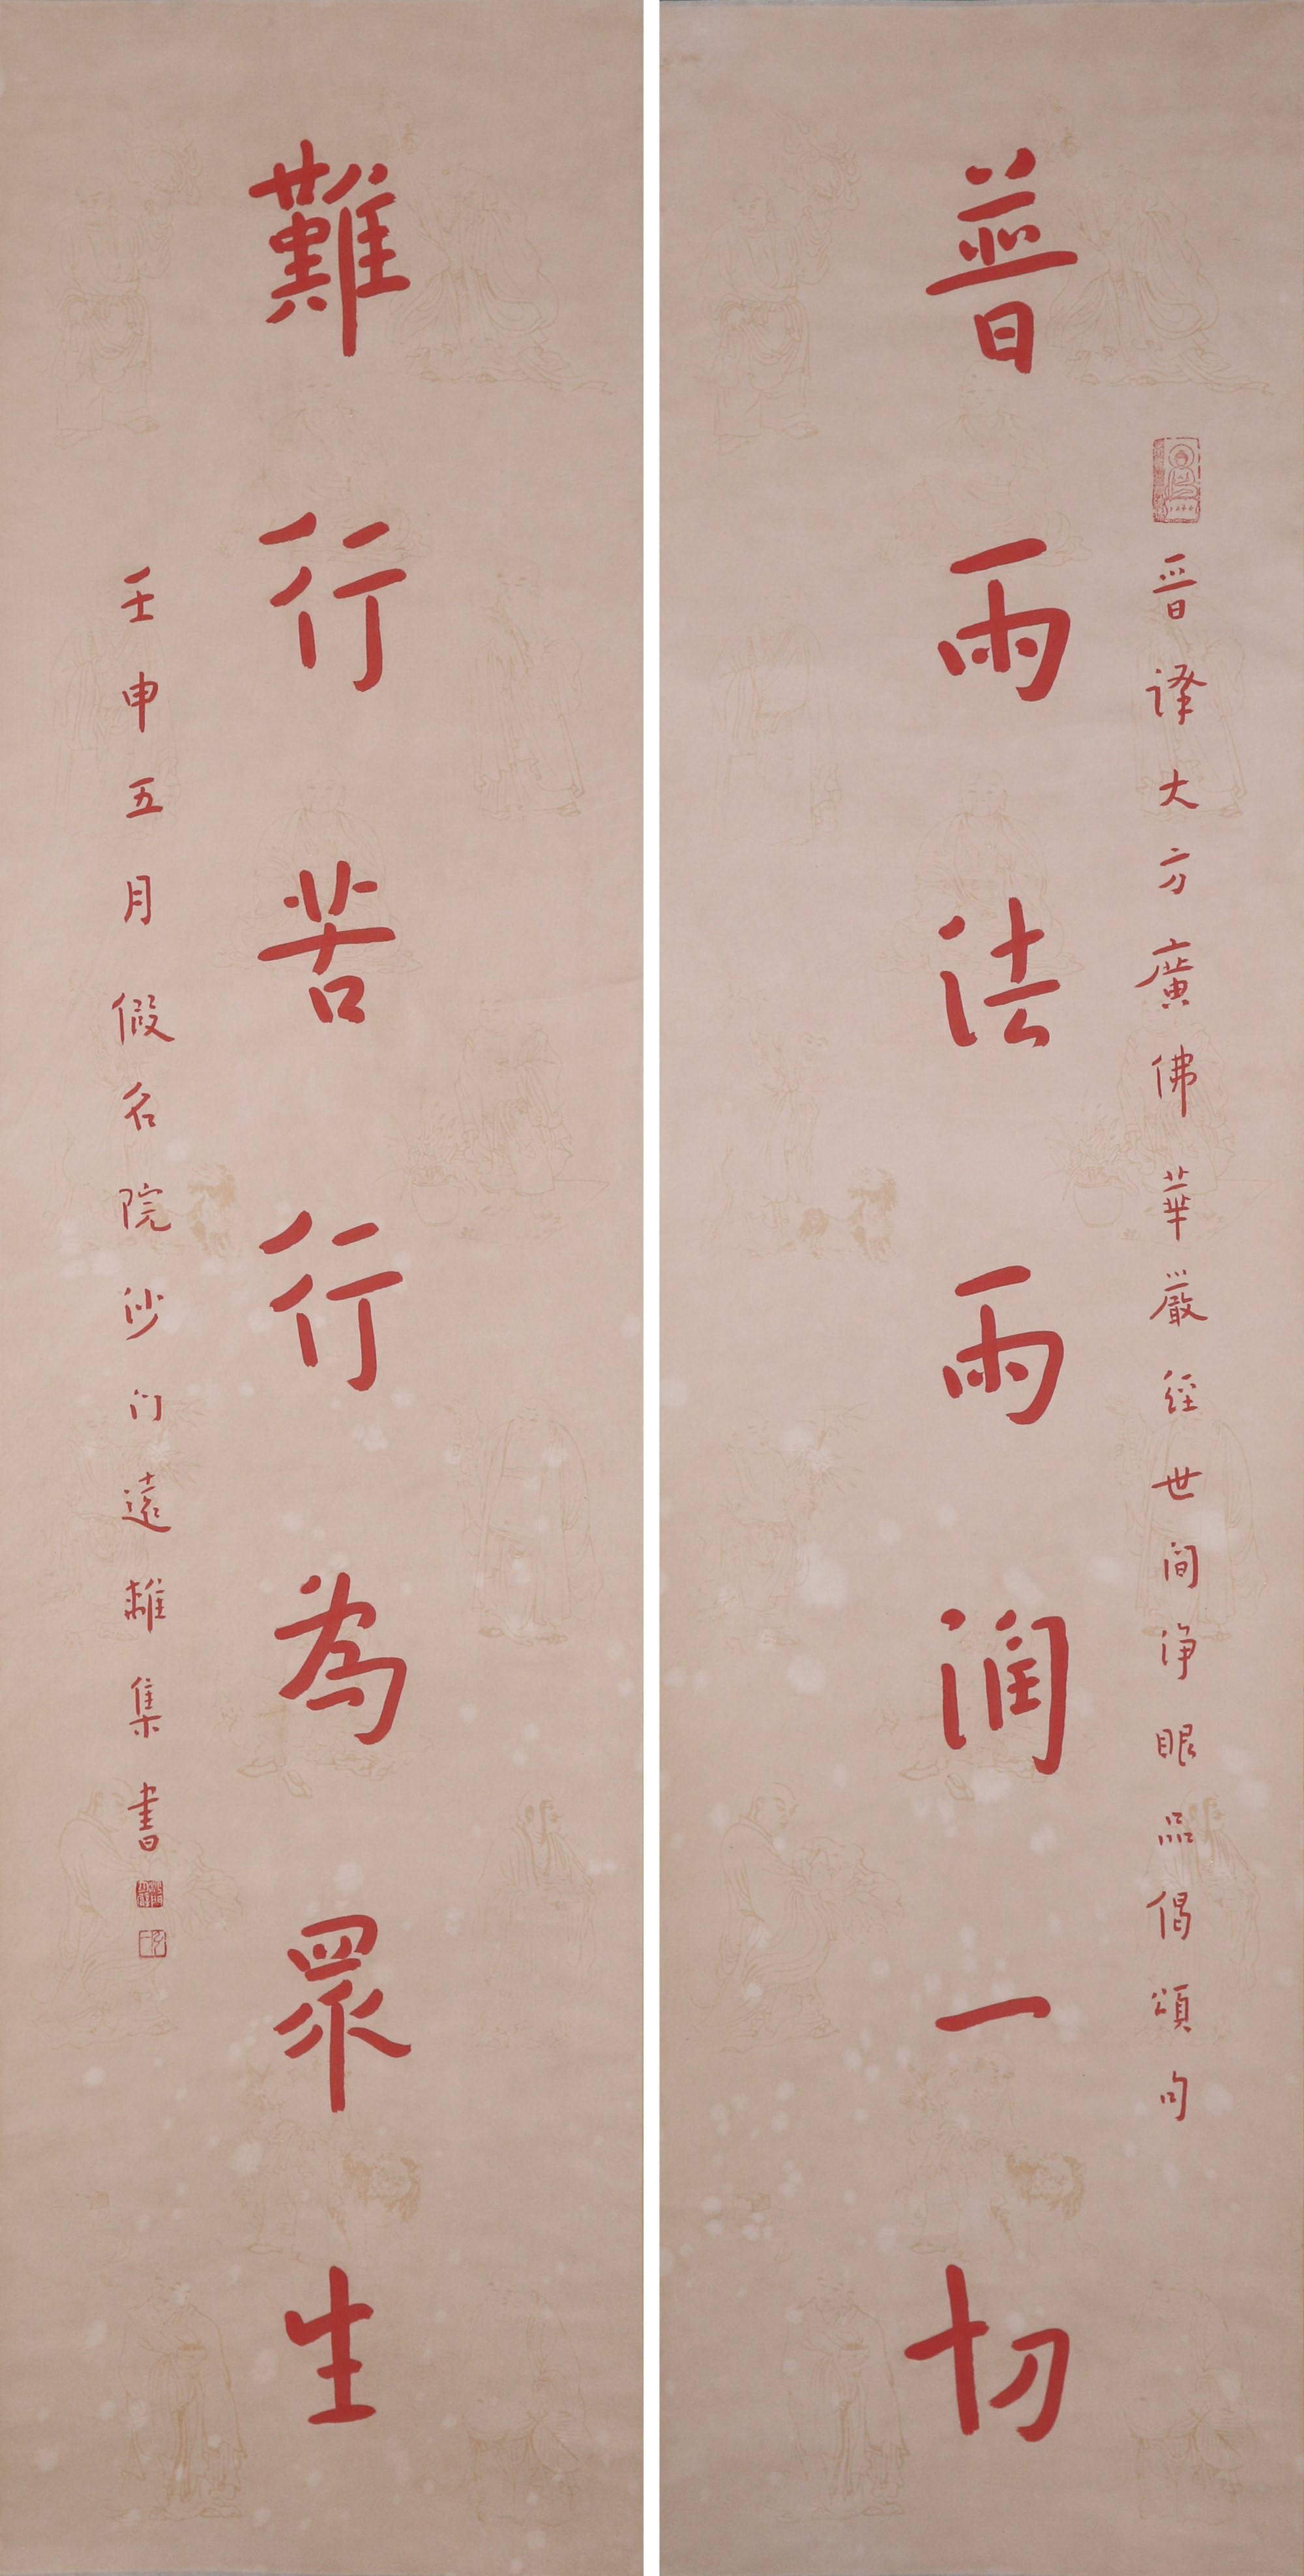 普雨法雨润一切
晋译大方廣佛華嚴經世间净眼品偈頌句
難行苦行為眾生
壬申五月假名院沙门遠離集書